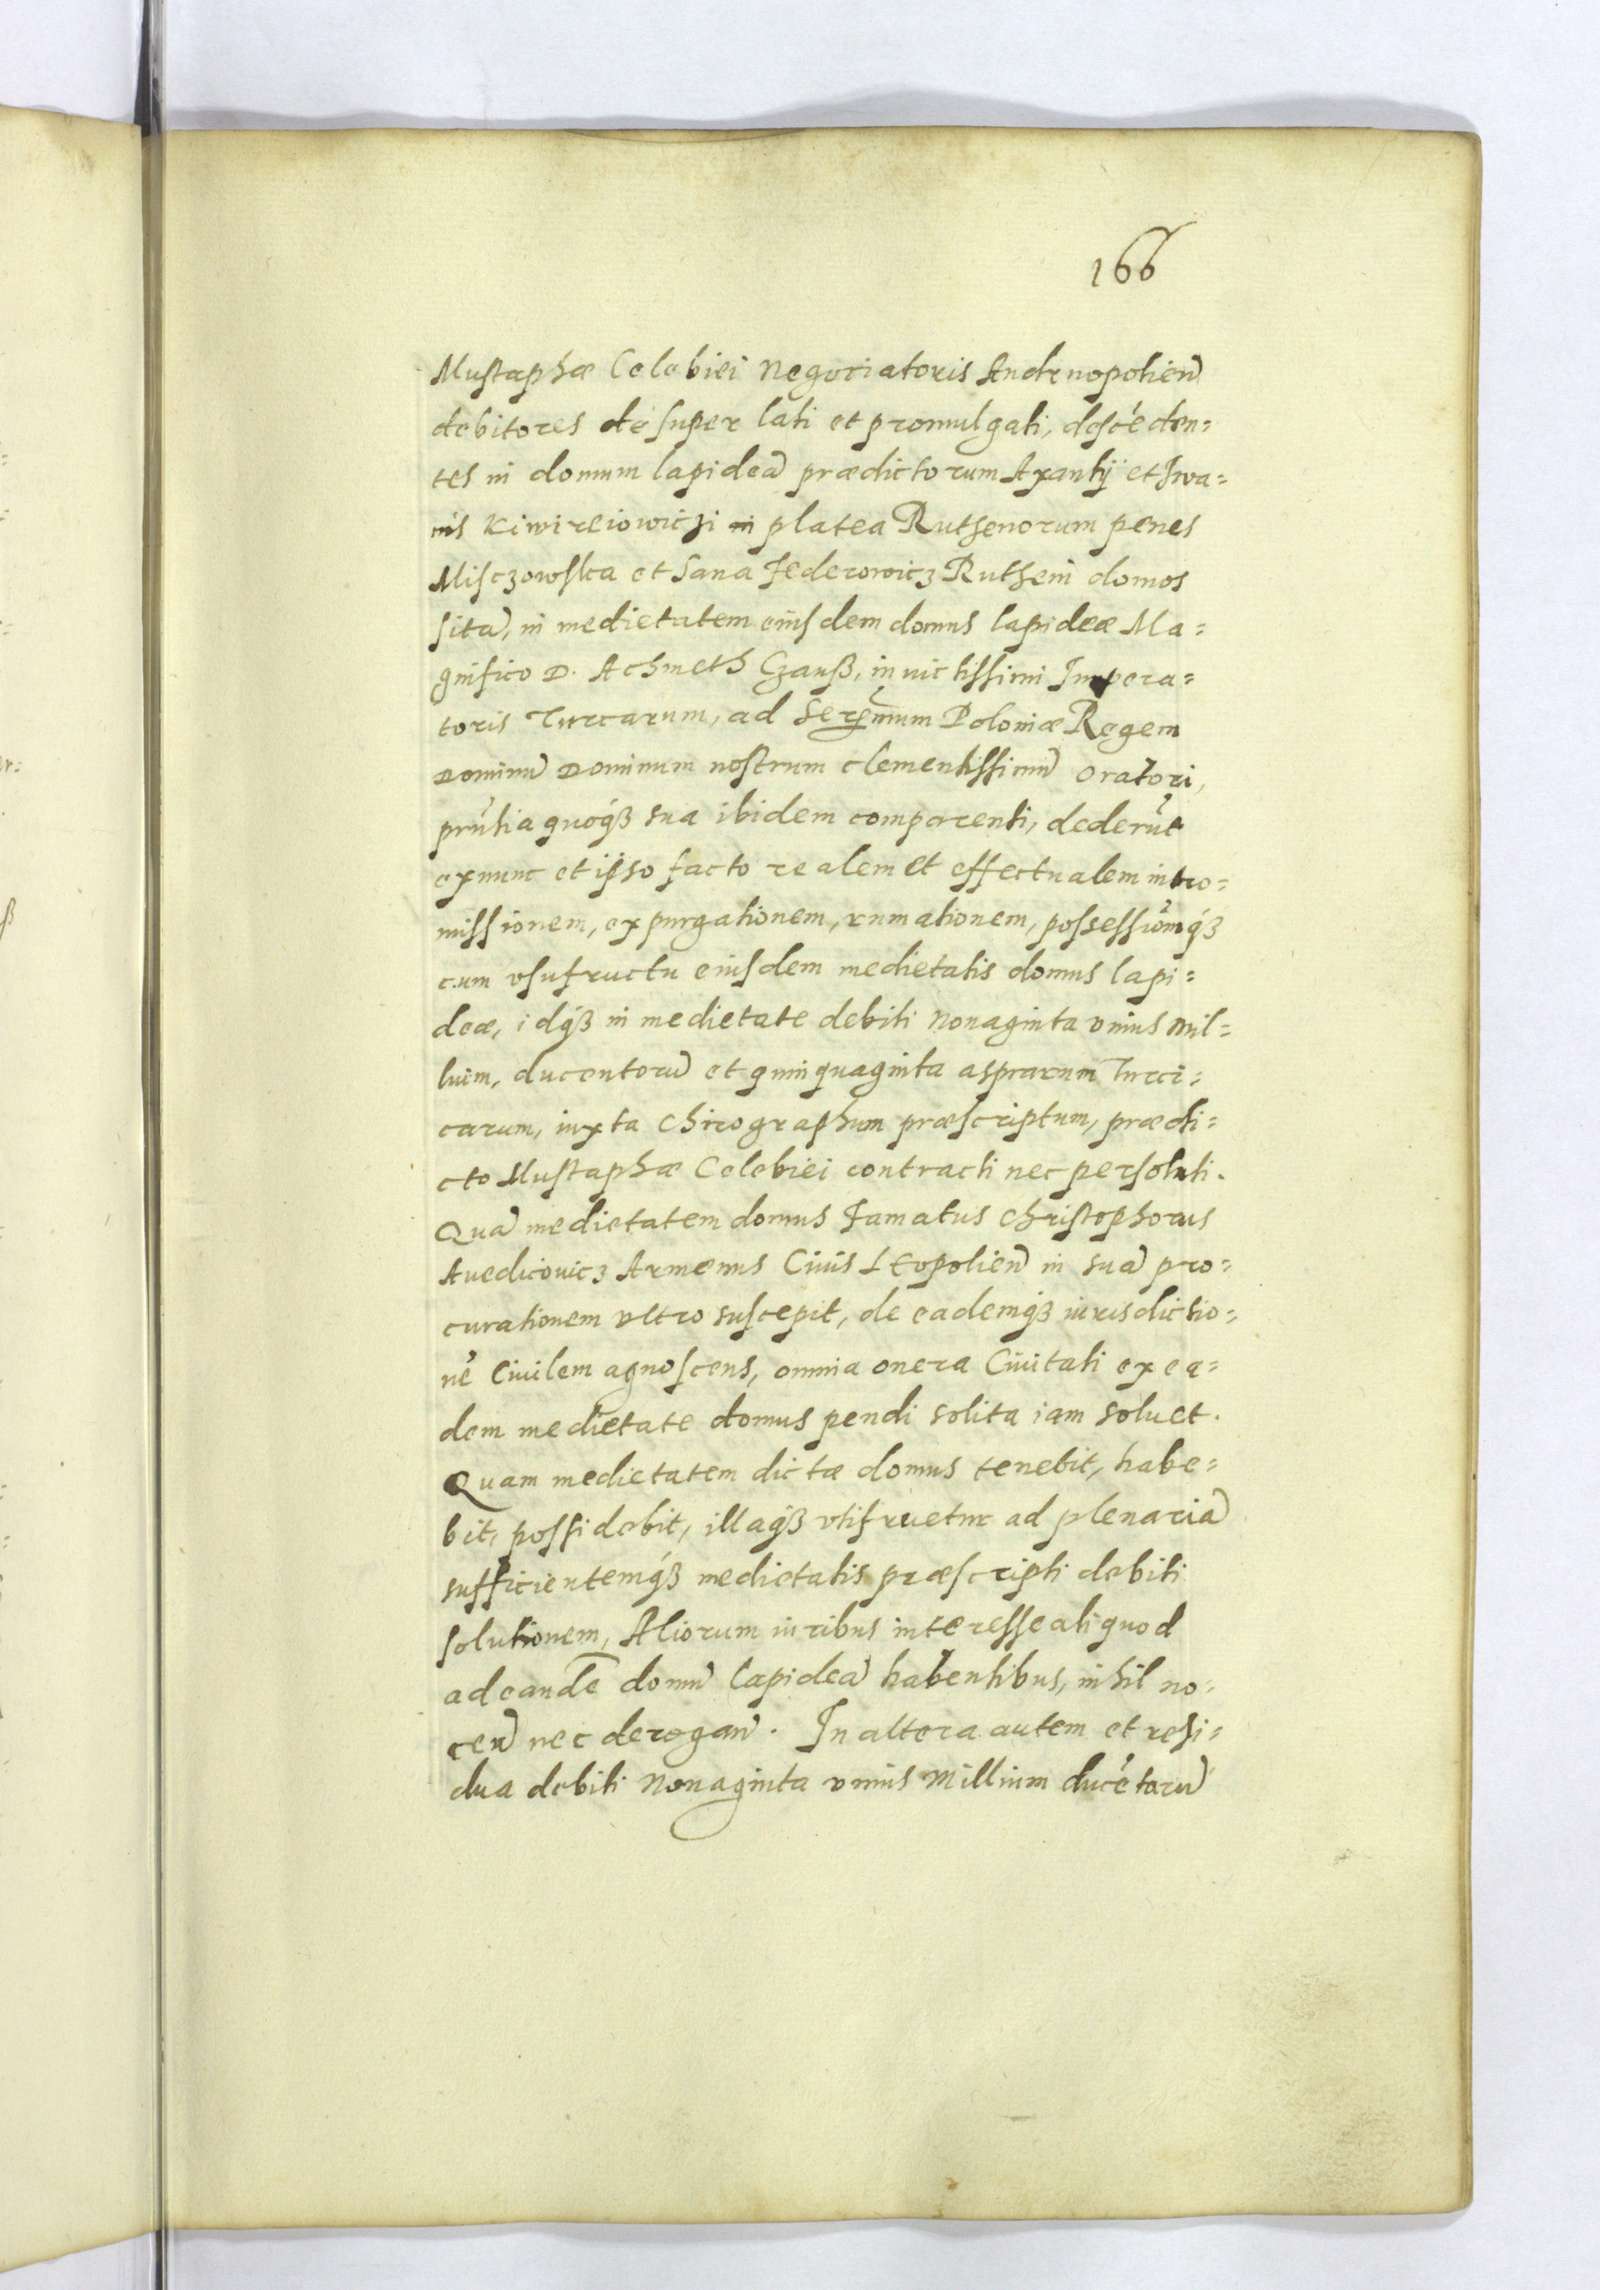 166
Mustaphæ Celebiei Negotiatoris Andrnopolieñ
debitores désuper lati et promulgati, descéden=
tes in domum lapideã prædictorum Axantij et Iwa=
nis Kiwireiowiczi in platea Ruthenorum penes
Misczowska et Sana Federowicz Rutheni domos
sitã, in medietatem eiusdem domus lapideæ Ma=
gnifico D. Achmeth Czauß, inuictissimi Impera=
toris Turcarum, ad Serenmum Poloniæ Regem
Dominũ Dominum nostrum clementissimũ oratori,
pr̃ntia quoqß sua ibidem comparenti, dederũt
exnunc et ipso facto realem et effectualem intro=
missionem, expurgationem, rumationem, possessiõmqß
cum vsufructu eiusdem medietatis domus lapi=
deæ, idqß in medietate debiti Nonaginta vnius Mil=
lium, ducentorũ et quinquaginta asprarum Turci=
carum, iuxta Chirographum præscriptum, prædi=
cto Mustaphæ Celebiei contracti nec persoluti.
Quã medietatem domus Famatus Christophorus
Auedicouicz Armenus Ciuis LEopolieñ in suã pro=
curationem vltro suscepit, de eademqß iurisdictio=
né Ciuilem agnoscens, omnia onera Ciuitati ex ea=
dem medietate domus pendi solita iam soluet.
Quam medietatem dictæ domus tenebit, habe=
bit, possidebit, illaqß vtifruetur ad plenariã
sufficientemqß medietatis præscripti debiti
solutionem, Aliorum iuribus interesse aliquod
ad eandẽ domũ lapideã habentibus, nihil no=
ceñ nec derogañ. In altera autem et resi=
dua debiti Nonaginta vnius Millium ducétorũ